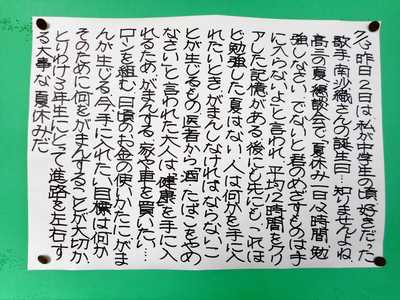 7/3 昨日2日は、私が中学生の頃好きだった
歌手、南沙織さんの誕生日…知りませんよね。
高三の夏、懇談会で「夏休み一日12時間、勉
強しなさい。でないと君のめざすものは手
に入らないよ」と言われ、平均12時間をクリ
アした記憶がある。後にも先にも、これほ
ど勉強した夏はない。人は何かを手に入
れたいとき、がまんしなければならないこ
とが生じるもの。医者から「酒・たばこをやめ
なさい」と言われた大人は、健康を手に入
れるためがまんする。家や車を買いたい…
ローンを組む。日頃のお金の使いかたにがま
んが生じる。今、手に入れたい目標は何か、
そのために何をがまんすることが大切か、
とりわけ3年生にとって、進路を左右す
る大事な夏休みだ